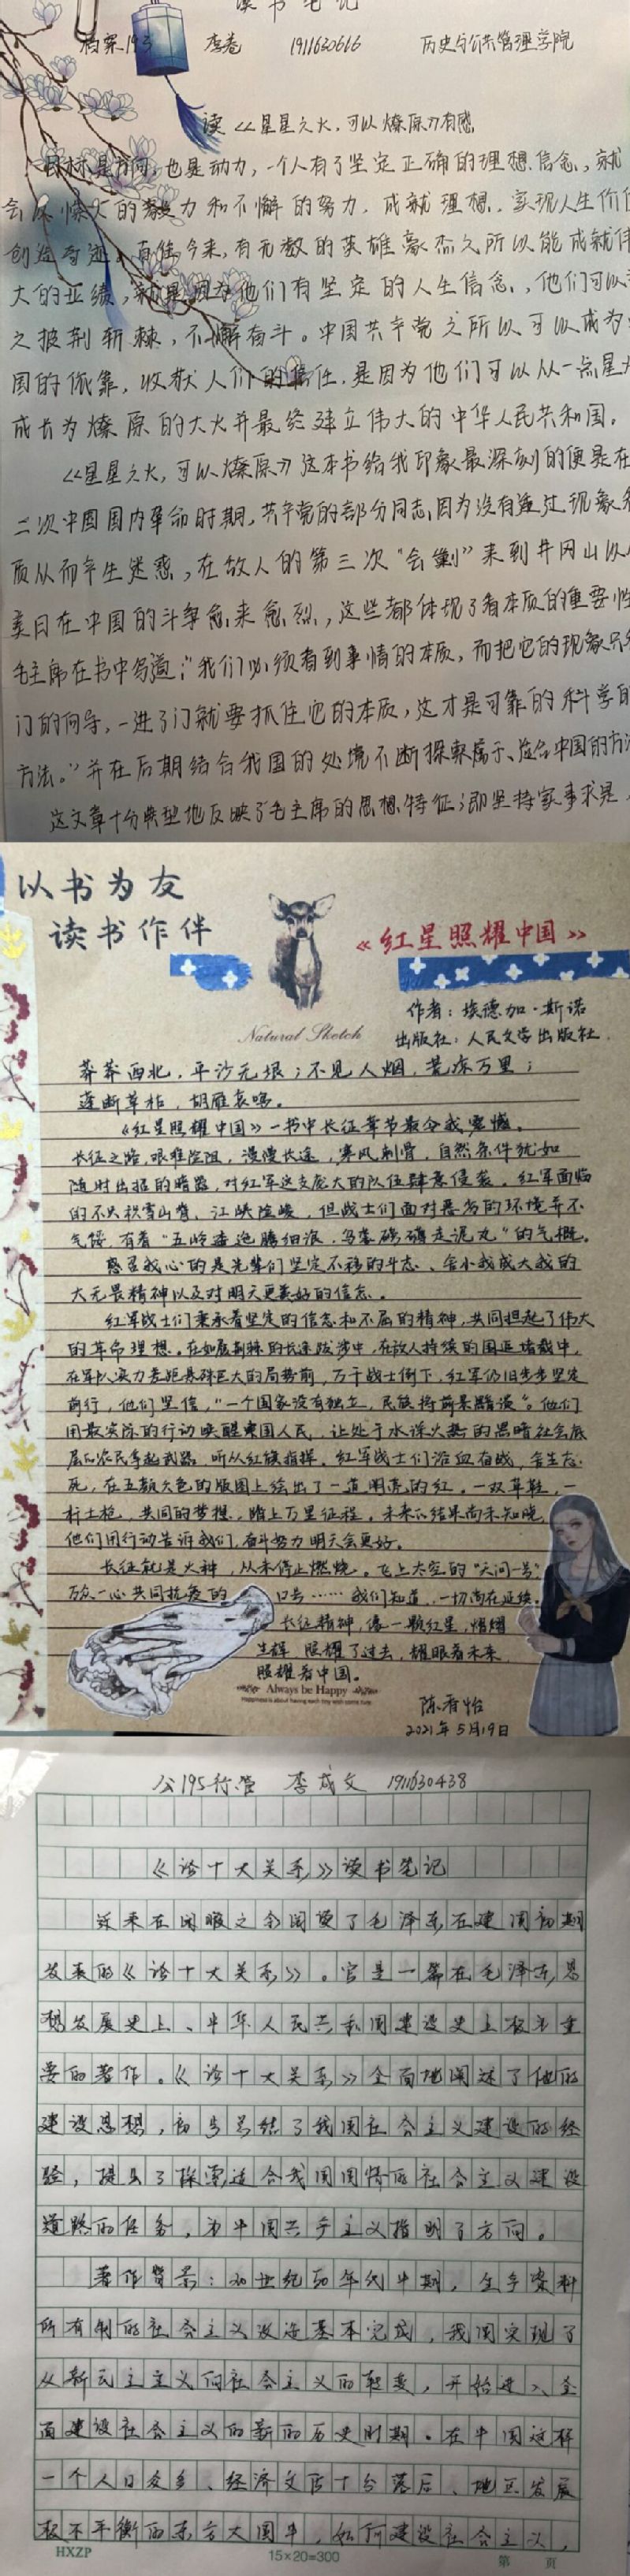 读书笔记
档案193 李巷 1911630616 历史与公共管理学院
读《星星之火,可以燎原》有感
目标是方向,也是动力,一个人有了坚定正确的理想信念,就
会以惊人的毅力和不懈的努力,成就理想,实现人生价值
创造奇迹。古往今来,有无数的英雄豪杰之所以能成就伟
大的业绩,就是因为他们有坚定的人生信念,他们可以
之披荆斩棘,不懈奋斗。中国共产党之所以可以成为
国的依靠,收获人们的信任,是因为他们可以从一点星火
成长为燎原的大火并最终建立伟大的中华人民共和国。
《星星之火,可以燎原》这本书给我印象最深刻的便是在
二次中国国内革命时期,共产党的部分同志因为没有透过现象
质从而产生迷惑,在敌人的第三次“会剿”来到井冈山以
美日在中国的斗争愈来愈烈,这些都体现了看本质的重要性
毛主席在书中写道:“我们必须看到事情的本质,而把它的现象只
门的向导,一进了门就要抓住它的本质,这才是可靠的科学的
方法。”并在后期结合我国的处境不断探索属于、适合中国的方
这文章十分典型地反映了毛主席的思想特征;即坚持实事求是,
以书为友
读书作伴
《红星照耀中国》
Natural Sketch
作者:埃德加·斯诺
出版社:人民文学出版社
莽莽西北,平沙无垠;不见人烟,荒凉万里;
蓬断草枯,胡雁哀鸣。
《红星照耀中国》一书中长征章节最令我震憾。
长征之路,艰难险阻,漫漫长途,寒风刺骨,自然条件犹如
随时出招的暗器,对红军这支庞大的队伍肆意侵袭。红军面临
的不只积雪山脊、江峡险峻,但战士们面对恶劣的环境并不
气馁,有着“五岭逶迤腾细浪,乌蒙磅礴走泥丸”的气概。
慰召我心的是先辈们坚定不移的斗志、舍小我成大我的
大无畏精神以及对明天更美好的信念。
红军战士们秉承着坚定的信念和不屈的精神,共同担起了伟大
的革命理想。在如履荆棘的长途跋涉中,在敌人持续的围追堵截中,
在军队实力差距悬殊巨大的局势前,万千战士倒下,红军仍旧步步坚定
前行,他们坚信,“一个国家没有独立,民族将前景黯淡”。他们
用最实际的行动唤醒中国人民,让处于水深火热的黑暗社会底
层的农民争起武器,听从红旗指挥。红军战士们浴血奋战,舍生忘
死,在五颜六色的版图上绘出了一道闪亮的红。一双草鞋,一
杆土枪,共同的梦想,踏上万里征程。未来的结果尚未知晓,
他们用行动告诉我们,奋斗努力明天会更好。
长征就是火种,从未停止燃烧。飞上太空的“天问一号”
万众一心共同抗疫的 口号……我们知道,一切尚在延续。
长征精神,像一颗红星,熠熠
生辉,照耀了过去,耀眼着未来,
照耀着中国。
Always be Happy
Happiness is about having each tiny wish come true.
陈香怡
2021年5月19日
公195行管 李成文 1911630438
《论十大关系》读书笔记
近来在闲暇之余阅读了毛泽东在建国初期
发表的《论十大关系》。它是一篇在毛泽东思
想发展史上、中华人民共和国建设史上极为重
要的著作。《论十大关系》全面地阐述了他的
建设思想,初步总结了我国社会主义建设的经
验,提出了探索适合我国国情的社会主义建设
道路的任务,为中国共产主义指明了方向。
著作背景:20世纪50年代中期,生产资料
所有制的社会主义改造基本完成,我国实现了
从新民主主义向社会主义的转变,开始进入全
面建设社会主义的新的历史时期。在中国这样
一个人口众多、经济文化十分落后、地区发展
极不平衡的东方大国中,如何建设社会主义,
HXZP 15×20=300 第 页